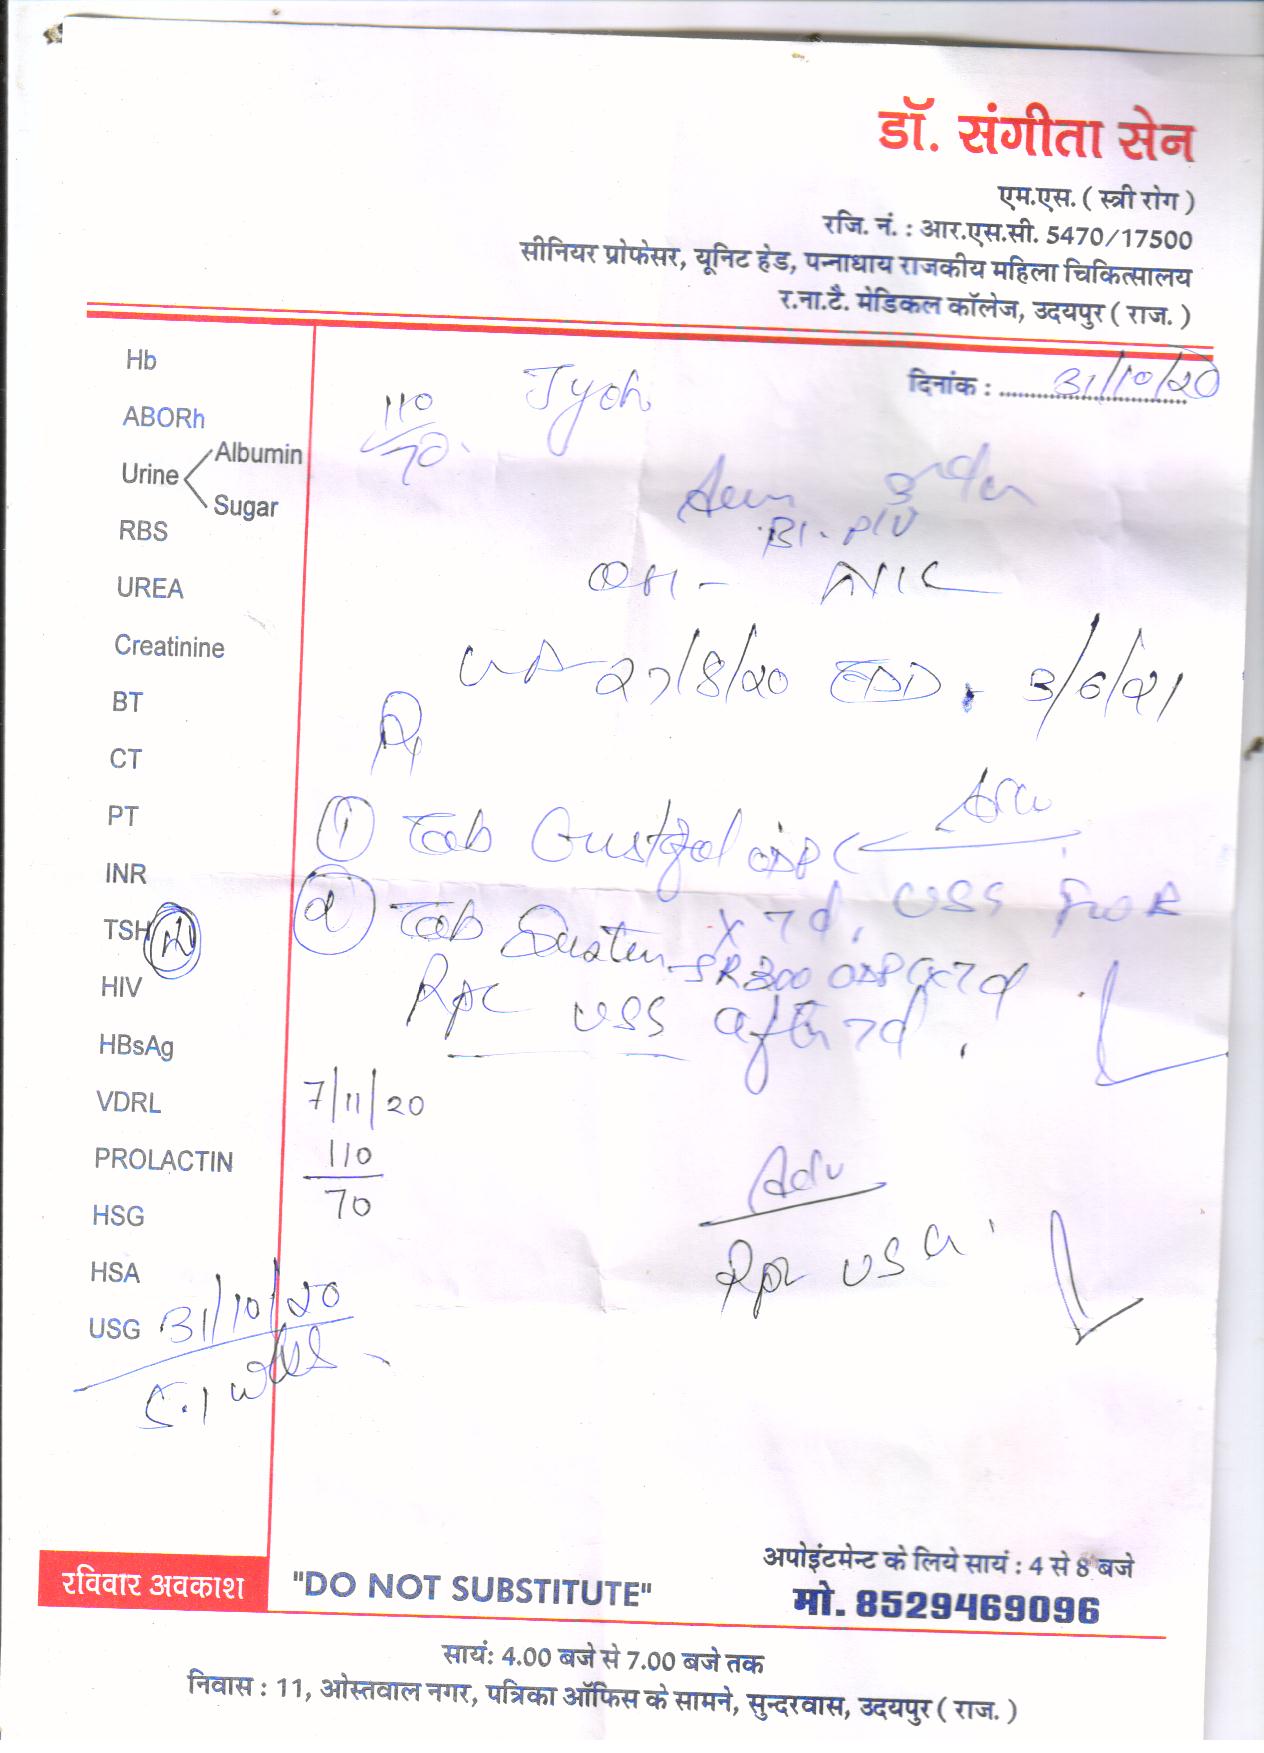 डॉ. संगीता सेन
एम.एस. ( स्त्री रोग )
रजि. नं. : आर.एस.सी. 5470/17500
सीनियर प्रोफेसर, यूनिट हेड, पन्नाधाय राजकीय महिला चिकित्सालय
र.ना.टै. मेडिकल कॉलेज, उदयपुर ( राज. )
दिनांक : 31/10/20
110/70
Hb
ABORh
Urine Albumin Sugar
RBS
UREA
Creatinine
BT
CT
PT
INR
TSH
HIV
HBsAg
VDRL
PROLACTIN
HSG
HSA
USG 31/10/20
5.1 wks
BI. P/V
27/8/20 EDD. 3/6/21
① Tab
② Tab Susten SR 300 x 7d
x 7d.
after 7d.
7/11/20
110/70
Adv
Rpt USG
रविवार अवकाश
"DO NOT SUBSTITUTE"
अपोइंटमेन्ट के लिये सायं : 4 से 8 बजे
मो. 8529469096
सायं: 4.00 बजे से 7.00 बजे तक
निवास : 11, ओस्तवाल नगर, पत्रिका ऑफिस के सामने, सुन्दरवास, उदयपुर ( राज. )